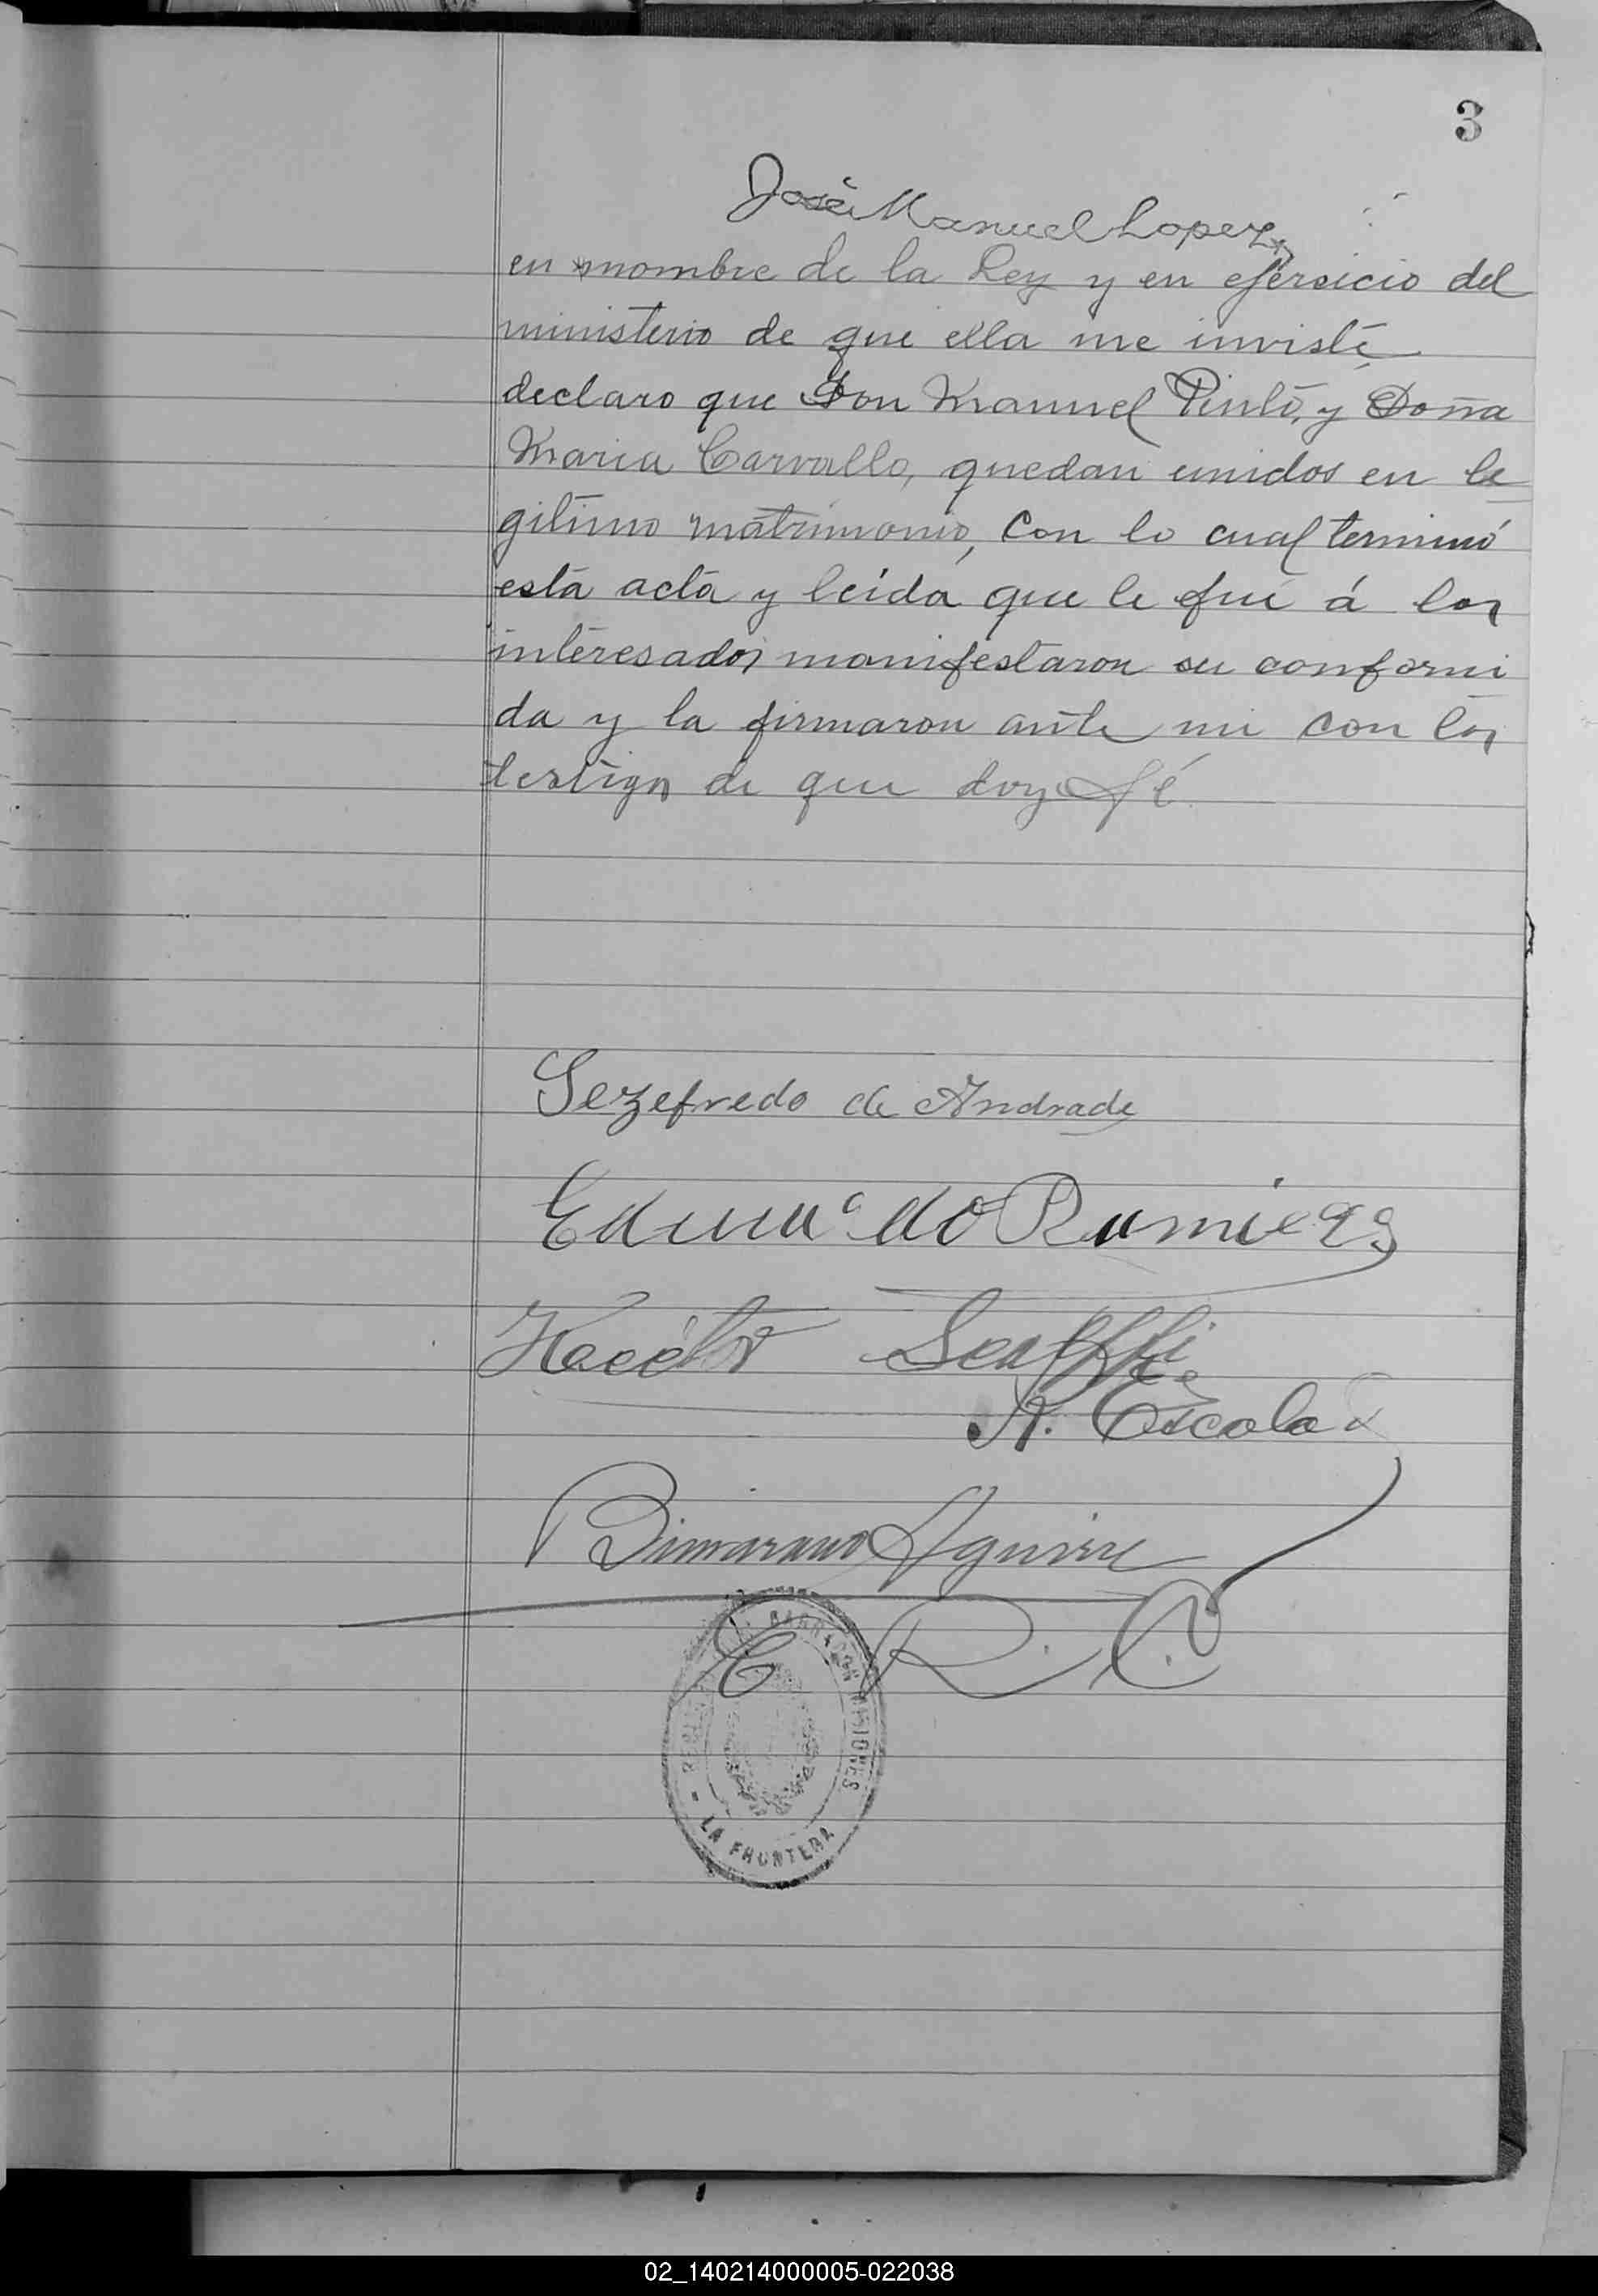 3
José Manuel Lopez
en nombre de la Ley y en ejersicio del
ministerio de que ella me inviste
declaro que Don Manuel Pinto, y Doña
Maria Carvallo, quedan unidos en le
gitimo matrimonio, Con lo cual terminó
esta acta y leida que le fué á los
interesados manifestaron su conformi
da y la firmaron ante mi con los
testigos de que doy fé
Sezefredo de Andrade
Eduardo Ramires
Hector Scaffi
A. Escola
Aguirre
E R. C.
BARRACON MISIONES
LA FRONTERA
02_140214000005-022038